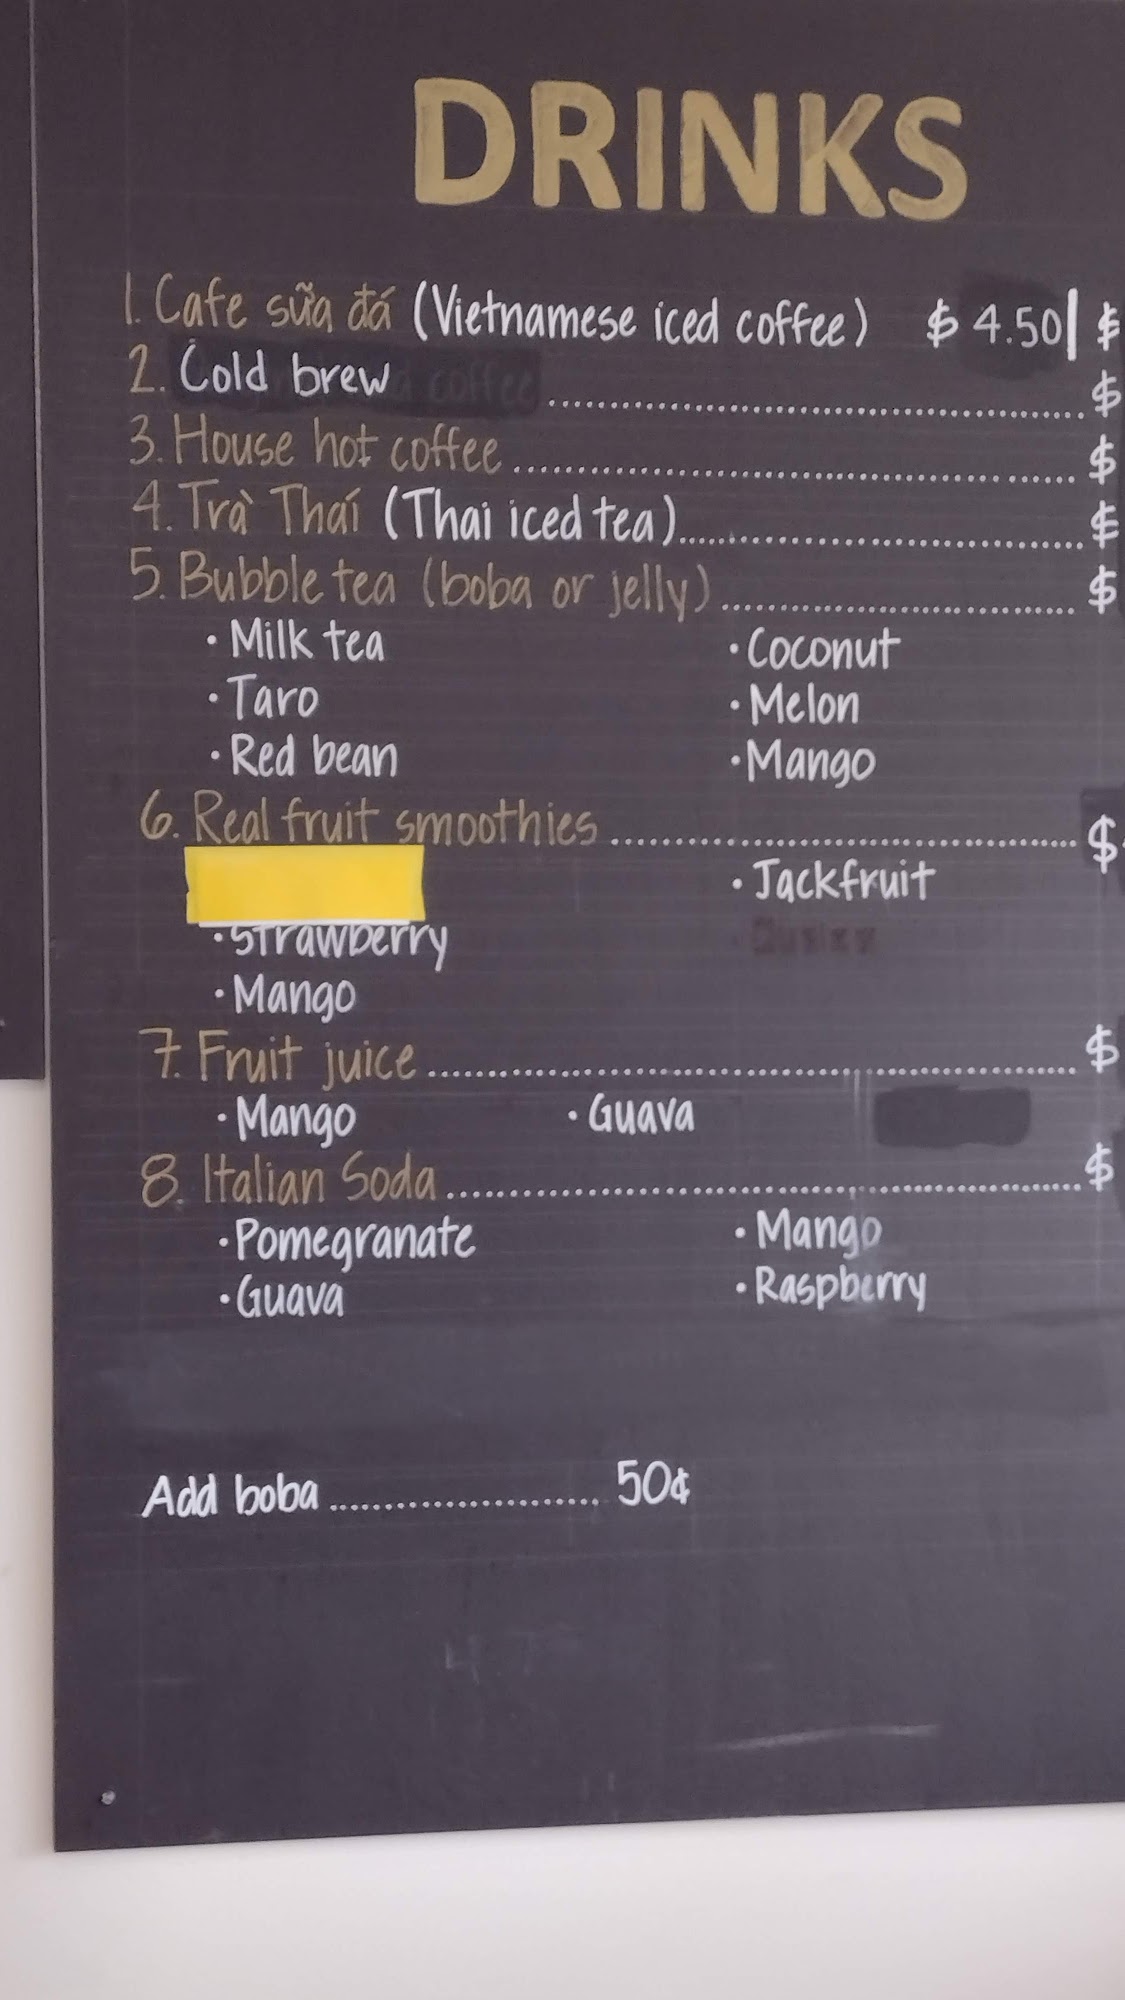 DRINKS
1. Cafe sữa đá (Vietnamese iced coffee) $ 4.50 | $
2. Cold brew ........ $
3. House hot coffee ........ $
4. Trà Thái (Thai iced tea) ........ $
5. Bubble tea (boba or jelly) ........ $
• Milk tea • Coconut
• Taro • Melon
• Red bean • Mango
6. Real fruit smoothies ........ $
• Jackfruit
• Strawberry
• Mango
7. Fruit juice ........ $
• Mango • Guava
8. Italian Soda ........ $
• Pomegranate • Mango
• Guava • Raspberry
Add boba ........ 50¢